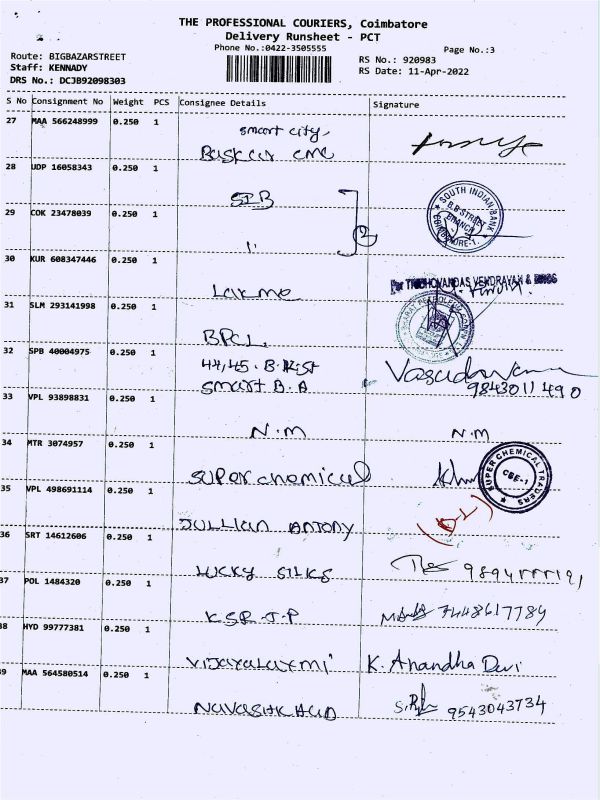 THE PROFESSIONAL COURIERS, Coimbatore
Delivery Runsheet - PCT
Phone No.:0422-3505555
Page No.:3
Route: BIGBAZARSTREET
RS No.: 920983
Staff: KENNADY
RS Date: 11-Apr-2022
DRS No.: DCJB92098303
S No Consignment No Weight PCS Consignee Details Signature
27 MAA 566248999 0.250 1
smart city,
Baskar cmc
28 UDP 16058343 0.250 1
SIB
SOUTH INDIAN BANK
B.B. STREET
BRANCH
COIMBATORE-1.
29 COK 23478039 0.250 1
11
30 KUR 608347446 0.250 1
For TRIBHOVANDAS VENDRAVAN & BROS
Lakme
31 SLM 293141998 0.250 1
BPCL
32 SPB 40004975 0.250 1
44,45. B.
smart B.A
9843011490
33 VPL 93898831 0.250 1
N.M N.M
34 MTR 3074957 0.250 1
super chemical
SUPER CHEMICAL TRADERS
CBE-1
35 VPL 498691114 0.250 1
JULLIAN ANTONY
36 SRT 14612606 0.250 1
LUCKY SILKS
37 POL 1484320 0.250 1
K.S.R. J.P 7448617789
38 HYD 99777381 0.250 1
Vijayalaxmi K. Anandha Devi
39 MAA 564580514 0.250 1
9543043734